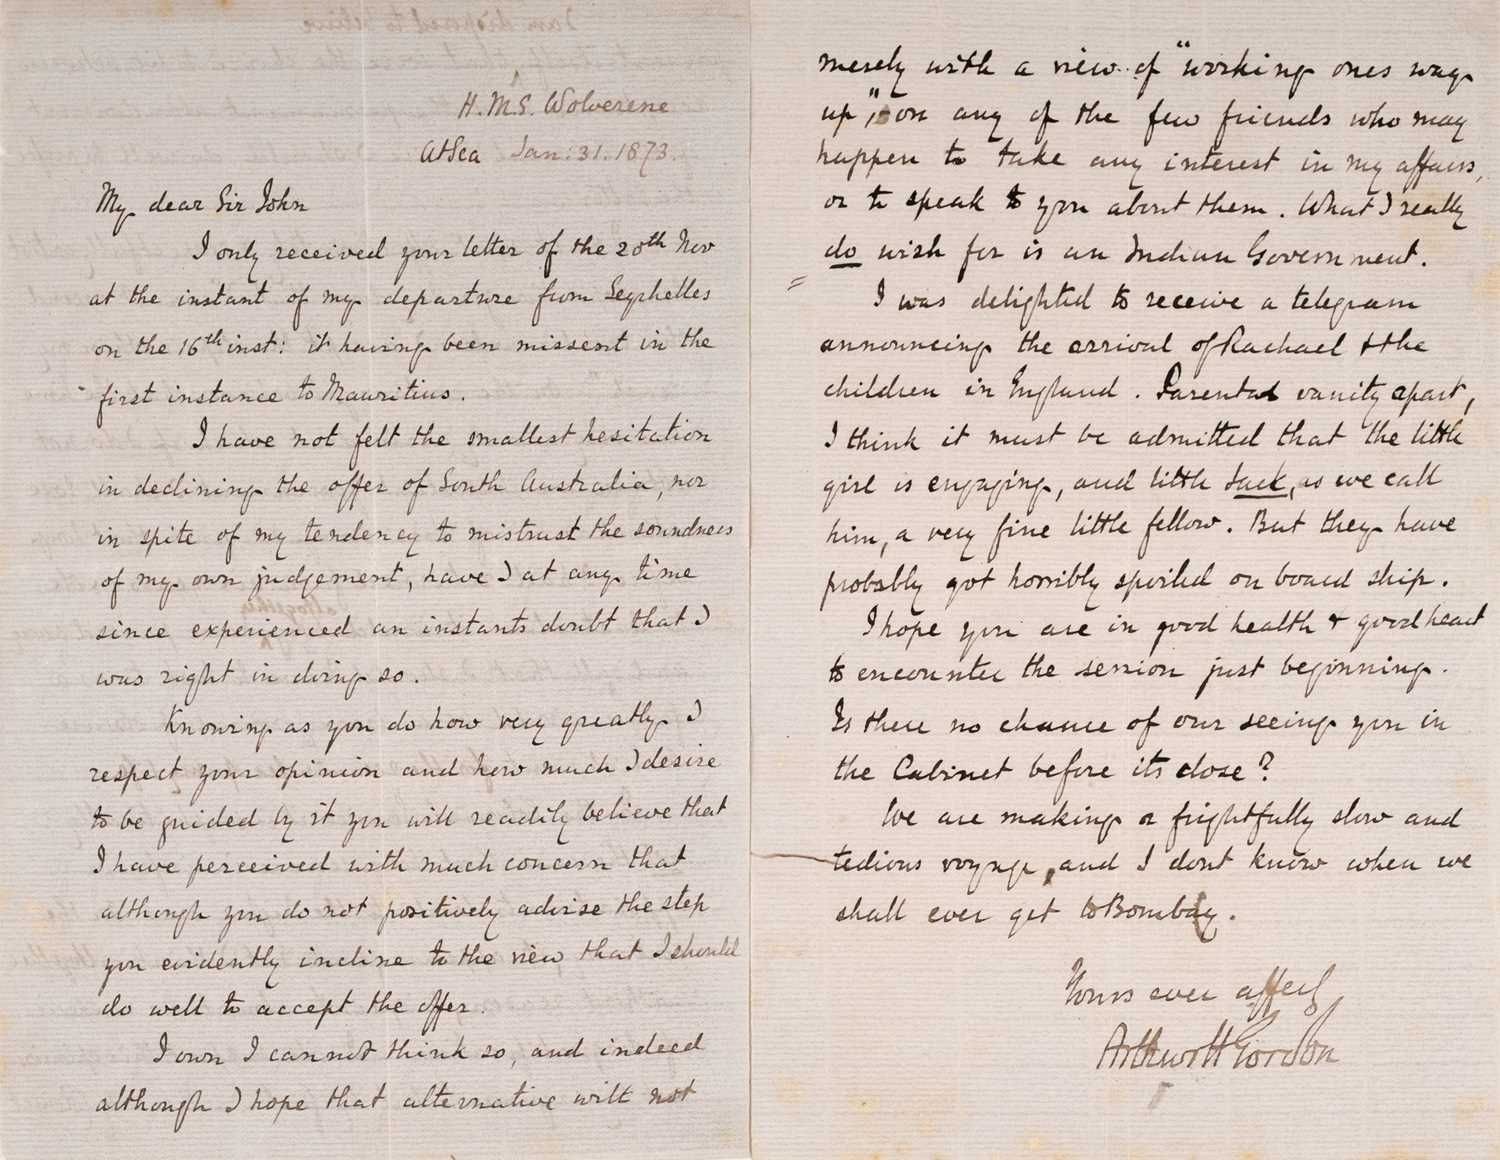 H.M.S. Wolverene
At Sea Jan: 31. 1873.
My dear Sir John
I only received your letter of the 20th Nov
at the instant of my departure from Seychelles
on the 16th inst: it having been missent in the
first instance to Mauritius.
I have not felt the smallest hesitation
in declining the offer of South Australia, nor
in spite of my tendency to mistrust the soundness
of my own judgement, have I at any time
altogether
since experienced an instants doubt that I
was right in doing so.
Knowing as you do how very greatly I
respect your opinion and how much I desire
to be guided by it you will readily believe that
I have perceived with much concern that
although you do not positively advise the step
you evidently incline to the view that I should
do well to accept the offer.
I own I cannot think so, and indeed
although I hope that alternative will not
merely with a view of "working ones way
up", or on any of the few friends who may
happen to take any interest in my affairs,
or to speak to you about them. What I really
do wish for is an Indian Government.
I was delighted to receive a telegram
announcing the arrival of Rachael & the
children in England. Parental vanity apart,
I think it must be admitted that the little
girl is engaging, and little Jack, as we call
him, a very fine little fellow. But they have
probably got horribly spoiled on board ship.
I hope you are in good health & good heart
to encounter the session just beginning.
Is there no chance of our seeing you in
the Cabinet before its close?
We are making a frightfully slow and
tedious voyage, and I dont know when we
shall ever get to Bombay.
Yours ever affecly
Arthur H Gordon